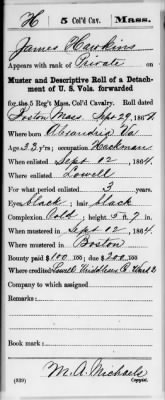 H 5 Col'd Cav. Mass.
James Hawkins
Appears with rank of Private on
Muster and Descriptive Roll of a Detach-
ment of U. S. Vols. forwarded
for the 5 Reg't Mass. Col'd Cavalry. Roll dated
Boston Mass. Sept 29, 1864
Where born Alexandria Va
Age 33 y'rs; occupation Hackman
When enlisted Sept 02, 1864
Where enlisted Lowell
For what period enlisted 3 years.
Eyes black; hair black
Complexion Cold; height 5 ft. 7 in.
When mustered in Sept 02, 1864
Where mustered in Boston
Bounty paid $100 100; due $200 100
Where credited Lowell Middlesex Co Ward 2
Company to which assigned
Remarks:
Book mark:
M. A. Michaels
(339) Copyist.